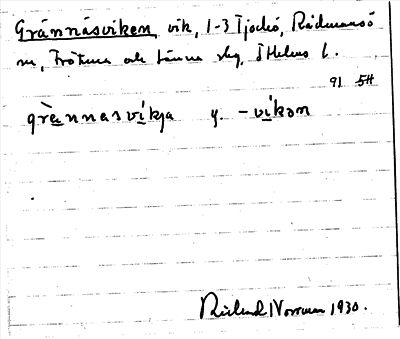 Grännäsviken, vik, 1-3 Tjockö, Rådmansö
sn, Frötuna och Länna skg, Sthlms l.
91 5H
grànnasvíkja y. -víkən
Rickard Norrman 1930.